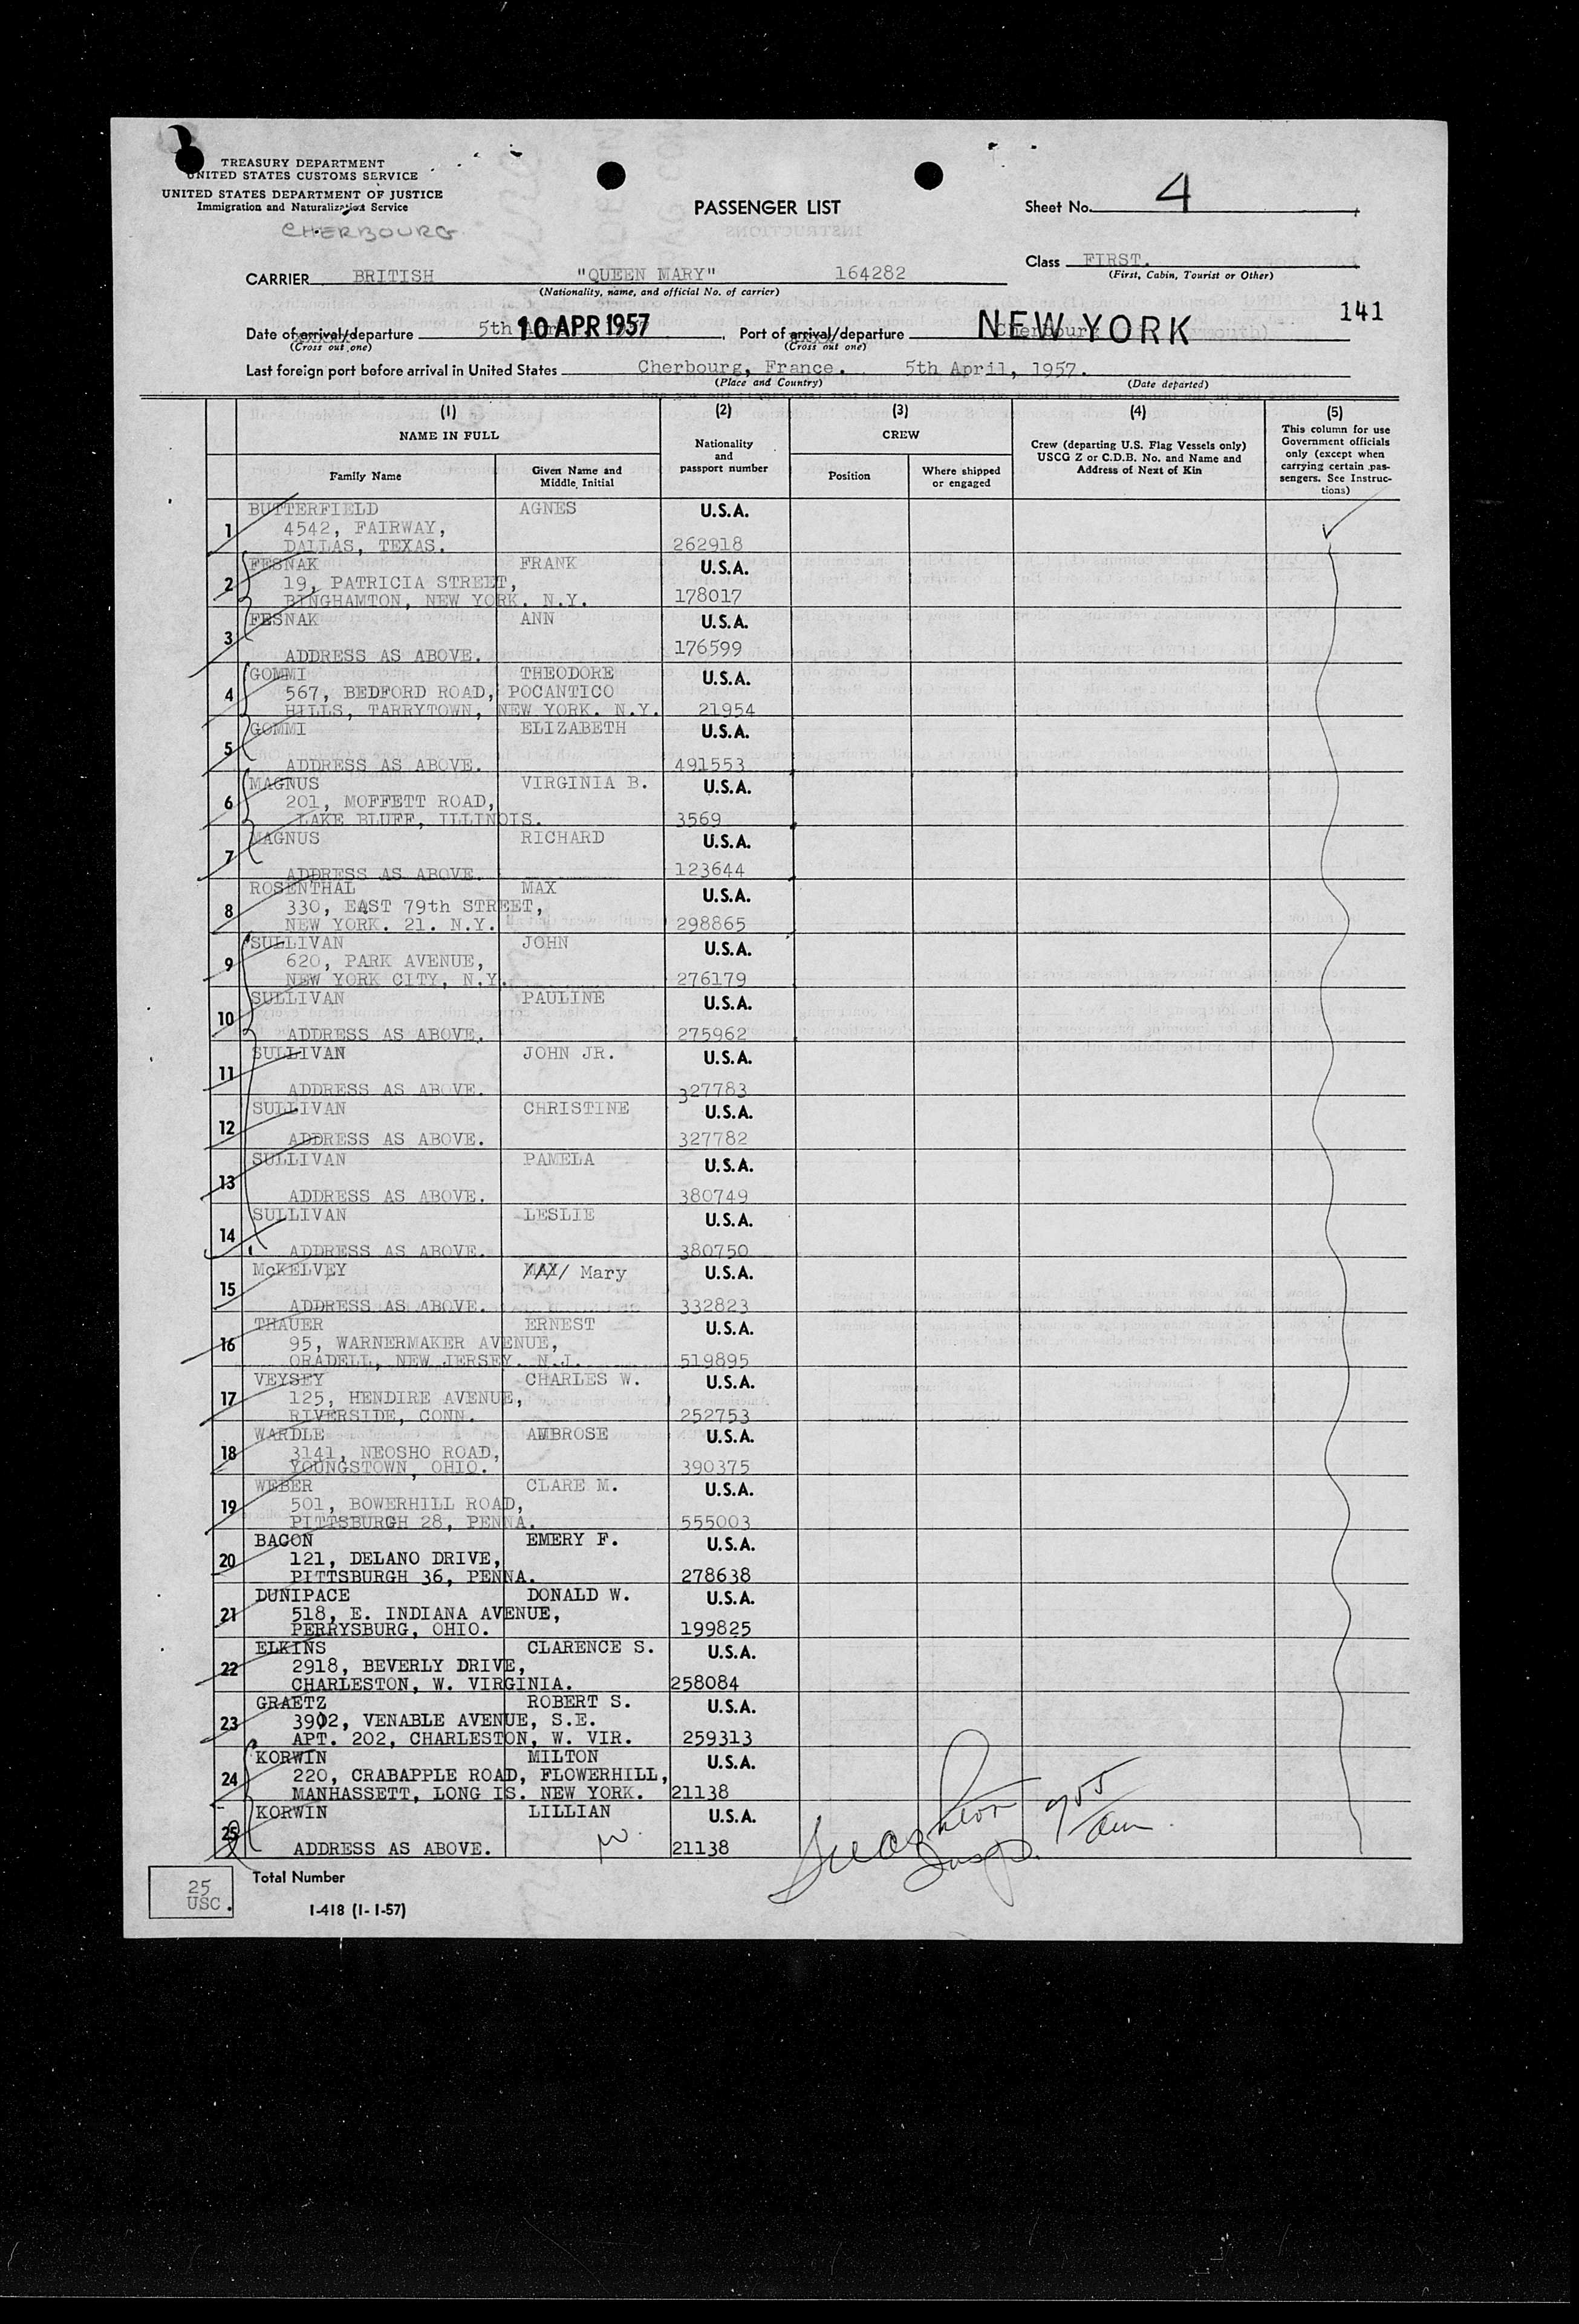 TREASURY DEPARTMENT
UNITED STATES CUSTOMS SERVICE
UNITED STATES DEPARTMENT OF JUSTICE
Immigration and Naturalization Service
CHERBOURG
PASSENGER LIST
Sheet No. 4
Class FIRST.
(First, Cabin, Tourist or Other)
CARRIER BRITISH "QUEEN MARY" 164282
(Nationality, name, and official No. of carrier)
141
Date of arrival/departure 5th 10 APR 1957 Port of arrival/departure Cherbourg NEW YORK
(Cross out one) (Cross out one)
Last foreign port before arrival in United States Cherbourg, France. 5th April, 1957.
(Place and Country) (Date departed)
(1) (2) (3) (4) (5)
NAME IN FULL
Family Name
Given Name and
Middle Initial
Nationality
and
passport number
CREW
Position
Where shipped
or engaged
Crew (departing U.S. Flag Vessels only)
USCG Z or C.D.B. No. and Name and
Address of Next of Kin
This column for use
Government officials
only (except when
carrying certain pas-
sengers. See Instruc-
tions)
1 BUTTERFIELD AGNES U.S.A.
4542, FAIRWAY,
DALLAS, TEXAS. 262918
2 FESNAK FRANK U.S.A.
19, PATRICIA STREET,
BINGHAMTON, NEW YORK. N.Y. 178017
3 FESNAK ANN U.S.A.
ADDRESS AS ABOVE. 176599
4 GOMMI THEODORE U.S.A.
567, BEDFORD ROAD, POCANTICO
HILLS, TARRYTOWN, NEW YORK. N.Y. 21954
5 GOMMI ELIZABETH U.S.A.
ADDRESS AS ABOVE. 491553
6 MAGNUS VIRGINIA B. U.S.A.
201, MOFFETT ROAD,
LAKE BLUFF, ILLINOIS. 3569
7 MAGNUS RICHARD U.S.A.
ADDRESS AS ABOVE. 123644
8 ROSENTHAL MAX U.S.A.
330, EAST 79th STREET,
NEW YORK. 21. N.Y. 298865
9 SULLIVAN JOHN U.S.A.
620, PARK AVENUE,
NEW YORK CITY, N.Y. 276179
10 SULLIVAN PAULINE U.S.A.
ADDRESS AS ABOVE. 275962
11 SULLIVAN JOHN JR. U.S.A.
ADDRESS AS ABOVE. 327783
12 SULLIVAN CHRISTINE U.S.A.
ADDRESS AS ABOVE. 327782
13 SULLIVAN PAMELA U.S.A.
ADDRESS AS ABOVE. 380749
14 SULLIVAN LESLIE U.S.A.
ADDRESS AS ABOVE. 380750
15 McKELVEY MAY Mary U.S.A.
ADDRESS AS ABOVE. 332823
16 THAUER ERNEST U.S.A.
95, WARNERMAKER AVENUE,
ORADELL, NEW JERSEY. N.J. 519895
17 VEYSEY CHARLES W. U.S.A.
125, HENDIRE AVENUE,
RIVERSIDE, CONN. 252753
18 WARDLE AMBROSE U.S.A.
3141, NEOSHO ROAD,
YOUNGSTOWN, OHIO. 390375
19 WEBER CLARE M. U.S.A.
501, BOWERHILL ROAD,
PITTSBURGH 28, PENNA. 555003
20 BACON EMERY F. U.S.A.
121, DELANO DRIVE,
PITTSBURGH 36, PENNA. 278638
21 DUNIPACE DONALD W. U.S.A.
518, E. INDIANA AVENUE,
PERRYSBURG, OHIO. 199825
22 ELKINS CLARENCE S. U.S.A.
2918, BEVERLY DRIVE,
CHARLESTON, W. VIRGINIA. 258084
23 GRAETZ ROBERT S. U.S.A.
3902, VENABLE AVENUE, S.E.
APT. 202, CHARLESTON, W. VIR. 259313
24 KORWIN MILTON U.S.A.
220, CRABAPPLE ROAD, FLOWERHILL,
MANHASSETT, LONG IS. NEW YORK. 21138
25 KORWIN LILLIAN U.S.A.
ADDRESS AS ABOVE. 21138
955
am
Insp.
Total Number
25
USC.
I-418 (1-1-57)